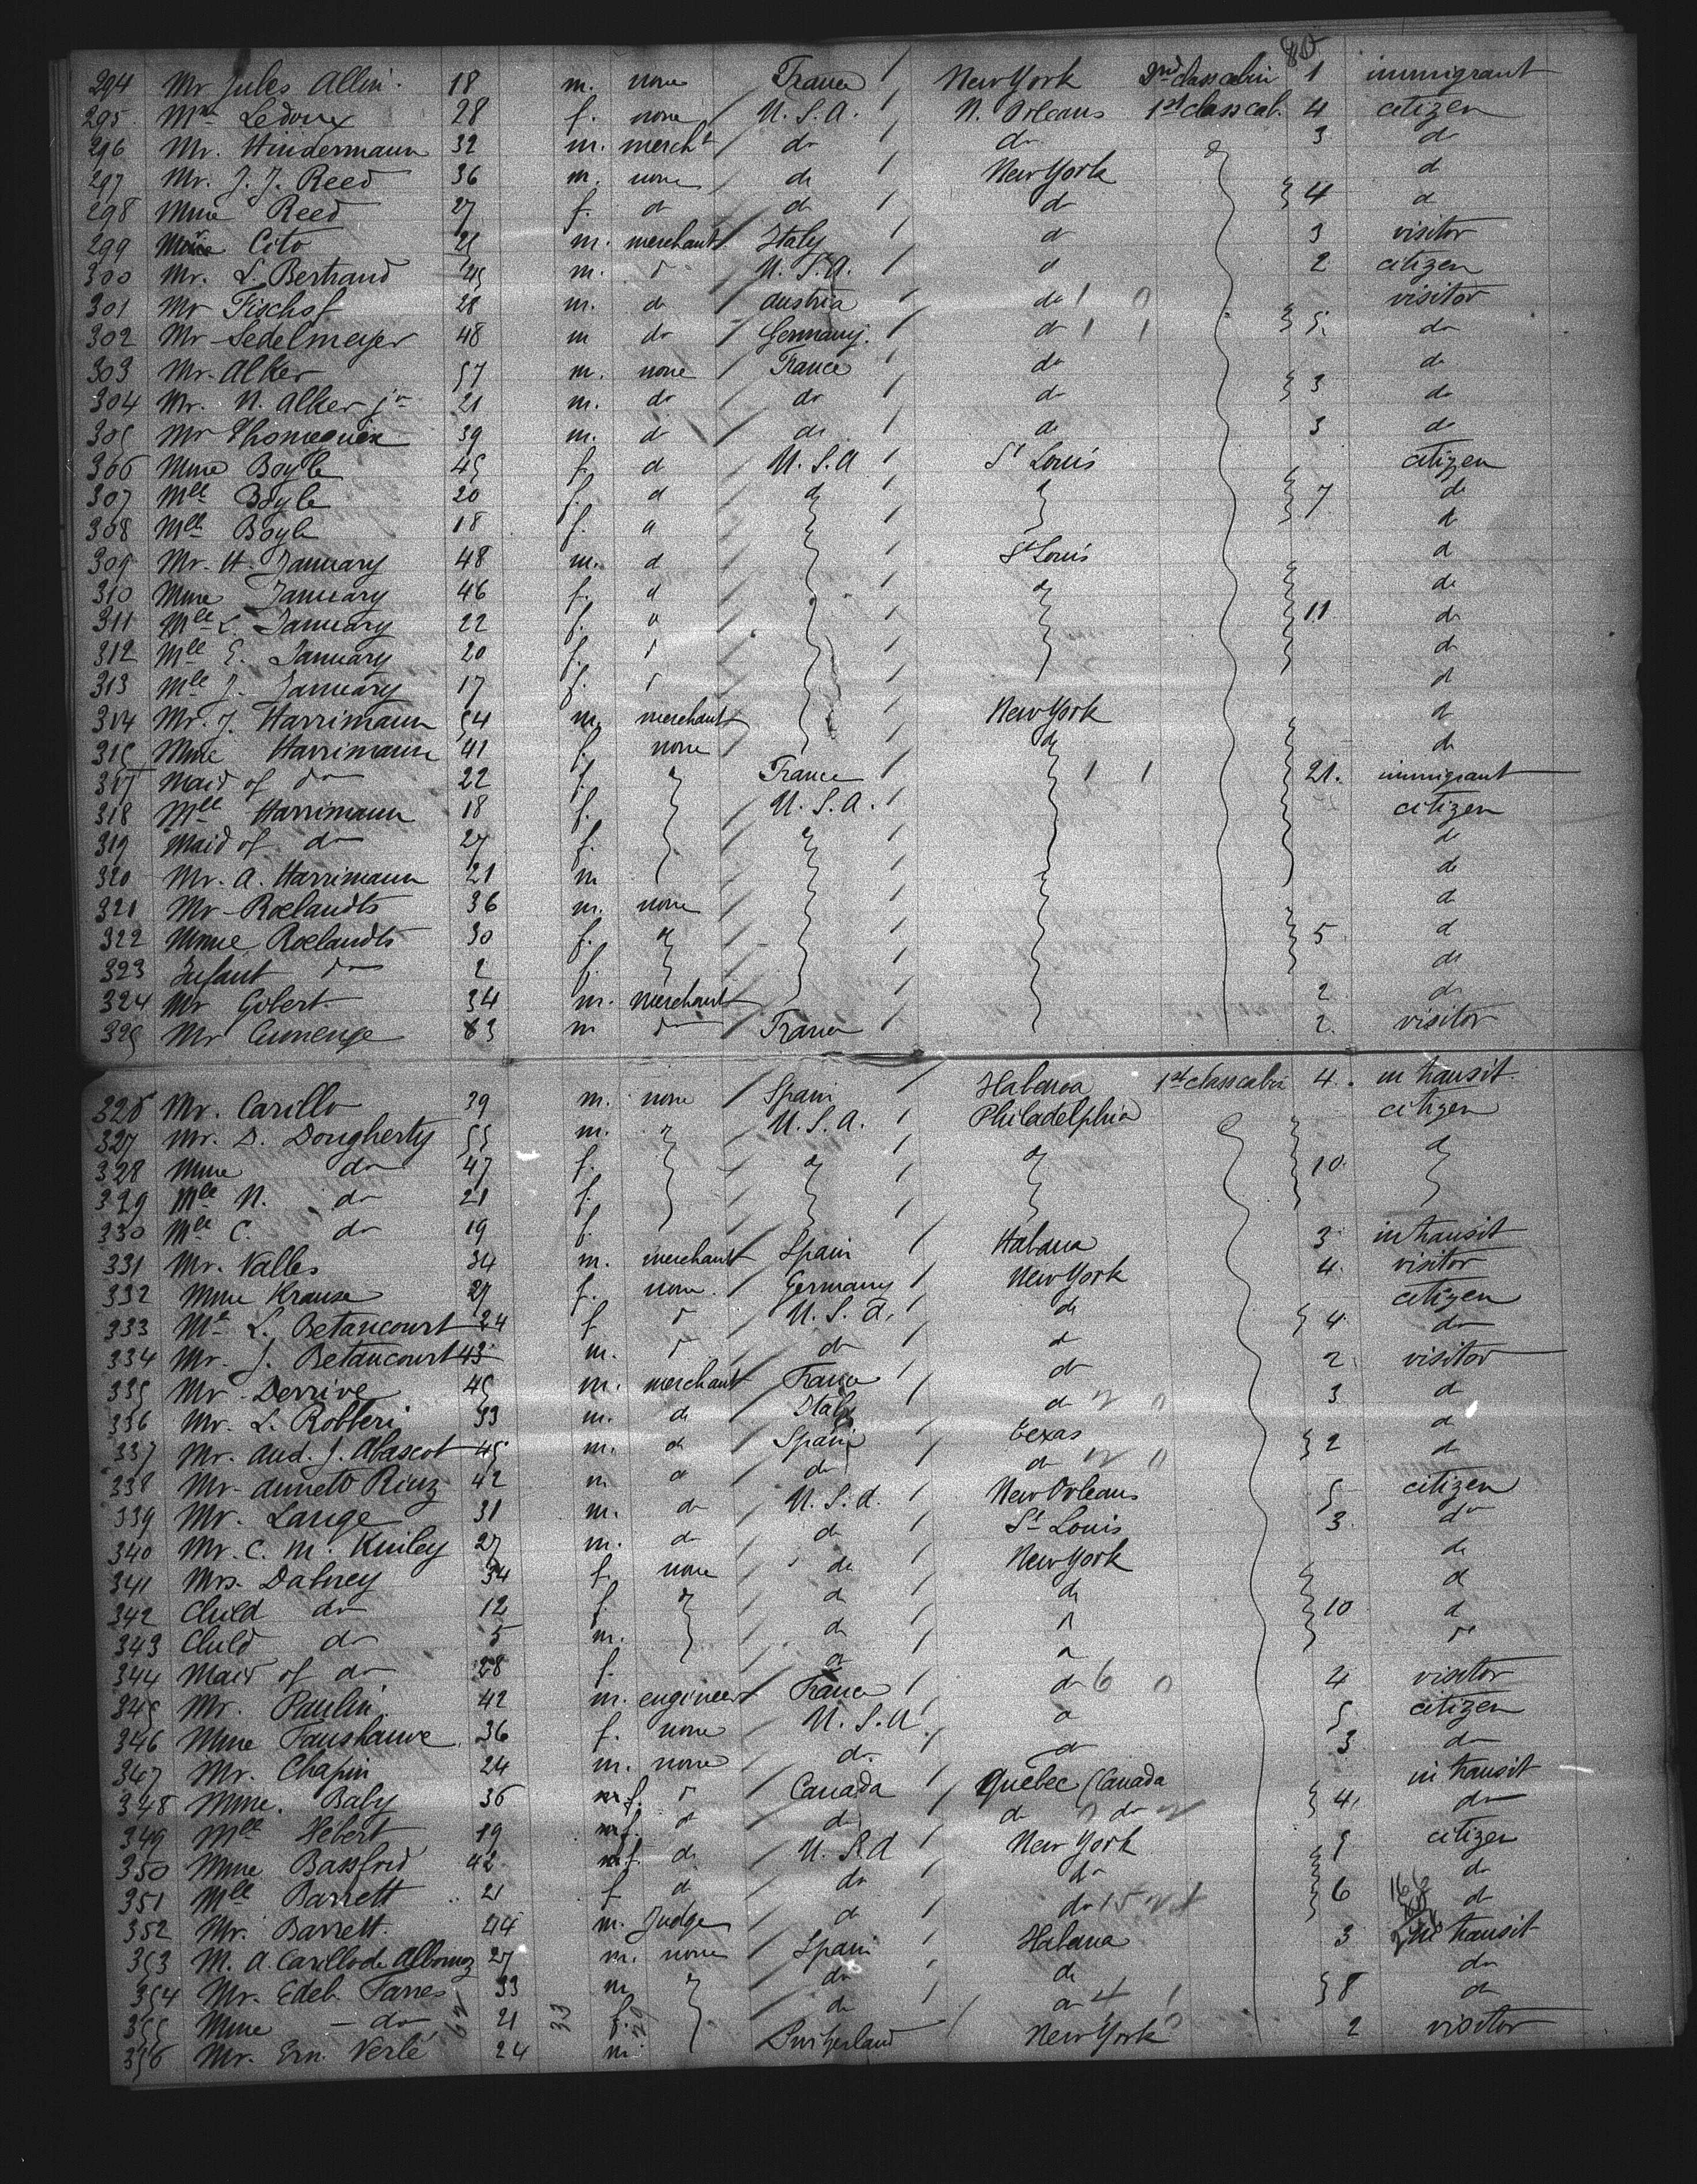 80
294 Mr Jules Allin. 18 m. none France New York 2nd class cabin 1 immigrant
295 Mme Ledoux 28 f. none U.S.A. N. Orleans 1st class cab. 4 citizen
296 Mr. Hindermann 32 m. mercht do do 3 do
297 Mr. J. J. Reed 36 m. none do New York d
298 Mme Reed 27 f. d d d 4 d
299 Cito m. merchant Italy d 3 visitor
300 Mr. L. Bertrand 45 m. d U.S.A. d 2 citizen
301 Mr Fischof 28 m. do Austria do 1 0 visitor
302 Mr Sedelmeyer 48 m do Germany. d 1 1 5. do
303 Mr. Alker 57 m. none France do do
304 Mr. N. Alker jr 21 m. do do do 3 do
305 Mr 39 m. d do do 3 do
306 Mme Boyle 45 f. d U.S.A St Louis citizen
307 Mlle Boyle 20 f. d d 7 do
308 Mlle Boyle 18 f. d d
309 Mr. H. January 48 m. d St Louis d
310 Mme January 46 f. d d do
311 Mlle L. January 22 f. d 11 do
312 Mlle E. January 20 f. d do
313 Mlle J. January 17 f. d d
314 Mr. J. Harrimann 54 m. merchant New York d
315 Mme Harrimann 41 f. none d do
317 Maid of do 22 f. France 1 1 21. immigrant
318 Mlle Harrimann 18 f. U.S.A. citizen
319 Maid of do 27 f. d
320 Mr. A. Harrimann 21 m do
321 Mr Roelandts 36 m. none d
322 Mme Roelandts 30 f. d 5 d
323 Infant do 2 f. do
324 Mr Gobert 34 m. merchant 2 do
325 Mr Cumenge 63 m do France 2. visitor
326 Mr. Carillo 39 m. none Spain Habana 1st class cabin 4. in transit
327 Mr. D. Dougherty 55 m. U.S.A. Philadelphia citizen
328 Mme do 47 f. d d 10. d
329 Mlle N. do 21 f.
330 Mlle C. do 19 f.
331 Mr. Valles 34 m. merchant Spain Habana 3 in transit
332 Mme Krause 27 f. none Germany New York 4. visitor
333 L. Betancourt 24 f d U.S.A. do citizen
334 Mr. J. Betancourt 43 m. d do d 4. do
335 Mr Derrive 45 m. merchant France do 2. visitor
336 Mr. L. Robberi 33 m. do Italy d 0 3 d
337 Mr. And. J. Abascot 45 m. d Spain Texas d
338 Mr. Rinz 42 m. d do d 0 2 d
339 Mr. Lange 31 m. do U.S.A. New Orleans 5 citizen
340 Mr. C. M. Kinley 27 m. do do St Louis 3. do
341 Mrs. Dabney 34 f. none do New York do
342 Child do 12 f. d d do d
343 Child do 5 m. do d 10 d
344 Maid of do 28 f. d d do
345 Mr. Paulin 42 m. engineer France do 6 0 4 visitor
346 Mme Fanshawe 36 f. none U.S.A. d 5 citizen
347 Mr. Chapin 24 m. none do do 3 do
348 Mme. Baby 36 f. d Canada Quebec (Canada in transit
349 Mlle Hebert 19 f. d do d do 4. do
350 Mme Bassford 42 f. do U.S.A New York 5 citizen
351 Mlle Barrett 21 f d do do do
352 Mr. Barrett. 44 m. Judge d do 6 d
353 M. A. Carillo de Albornoz 27 m. none Spain Habana 3 in transit
354 Mr. Edel. Farres 33 m do do do
355 Mme do 21 f. do do 4 1 8 do
356 Mr. Ern. Verlé 24 m. Switzerland New York 2 visitor